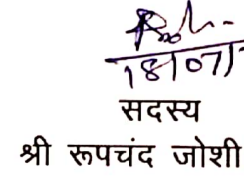 18/07/
सदस्य
श्री रूपचंद जोशी